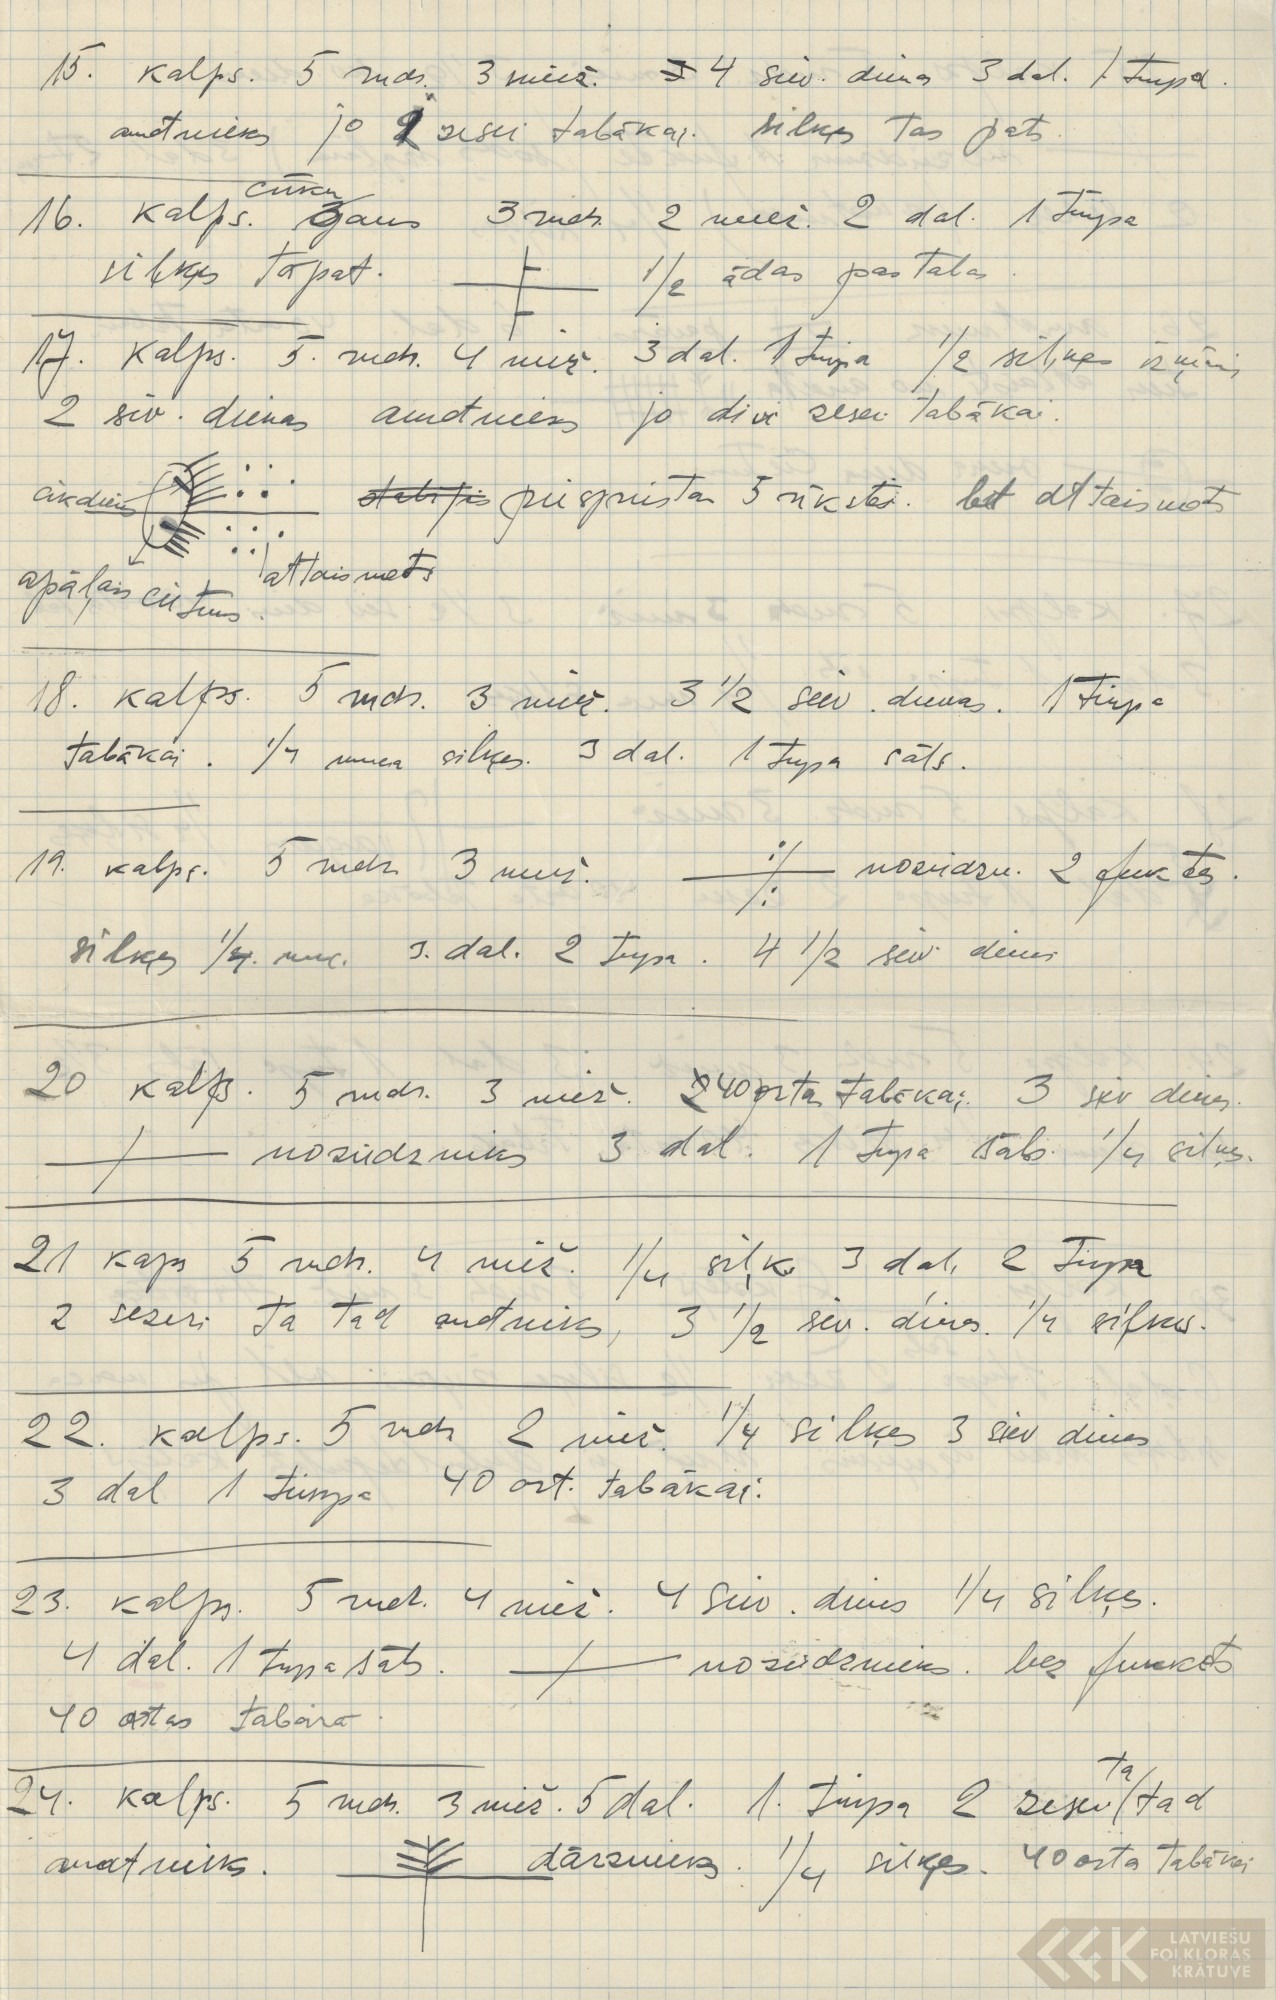 15. kalps. 5 rudz. 3 miež. 4 siev. dienas 3 dal. 1 turpa.
amatnieks jo 2 seseri tabākai. silķes tas pats.
cūku
16. kalps. gans 3 rudz. 2 miež. 2 dal. 1 turpa
silķes tāpat. 1/2 ādas pastalas.
17. kalps. 5. rudz. 4 miež. 3 dal. 1 turpa 1/2 silķes
2 siv. dienas amatnieks jo divi seseri tabākai.
cikdienis piespriestas 5 rīkstes. bet attaisnots
attaisnots
apaļais cietums.
18. kalps. 5 rudz. 3 miež. 3 1/2 siev. dienas. 1 turpa
tabākai. 1/4 muca silķes. 3 dal. 1 turpa sāls.
19. kalps. 5 rudz 3 miež. noziedzn. 2 funktes.
silķes 1/4. muc. 3. dal. 2 turpa. 4 1/2 siev dienas
20 kalps. 5 rudz. 3 miež. 40 orta tabākai. 3 siev dienas.
noziedznieks 3 dal. 1 turpa sāls. 1/4 silķes.
21 kaps 5 rudz. 4 miež. 1/4 siļķ. 3 dal. 2 turpa
2 seseri ta tad amatnieks, 3 1/2 siev. dienas. 1/4 siļķes.
22. kalps. 5 rudz 2 miež. 1/4 silķes 3 siev dienas
3 dal 1 turpa 40 ort. tabākai.
23. kalps. 5 rudz. 4 miež. 4 siev. dienas 1/4 silķes.
4 dal. 1 turpa sāls. noziedznieks. bez funktes
40 ortas tabāka.
ta
24. kalps. 5 rudz. 3 miež. 5 dal. 1. turpa 2 seseri / tad
amatnieks. dārznieks. 1/4 silķes. 40 orta tabākai
LATVIEŠU
FOLKLORAS
KRĀTUVE